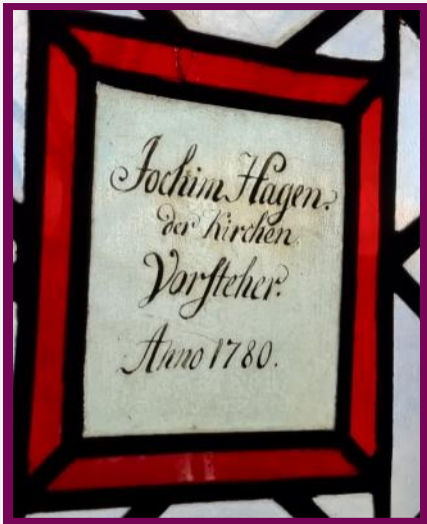 Jochim Hagen.
der Kirchen
Vorsteher.
Anno 1780.